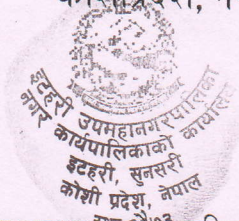 इटहरी उपमहानगरपालिका
नगर कार्यपालिकाको कार्यालय
इटहरी, सुनसरी
कोशी प्रदेश, नेपाल